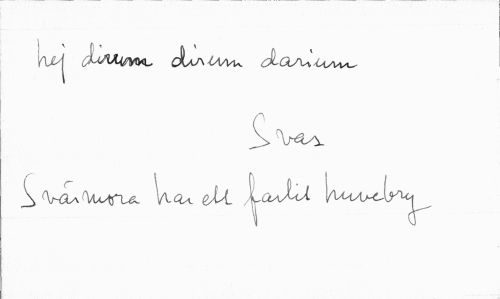 hej dirum dirum darium
Svar
Svärmora har ett farlit huvebry